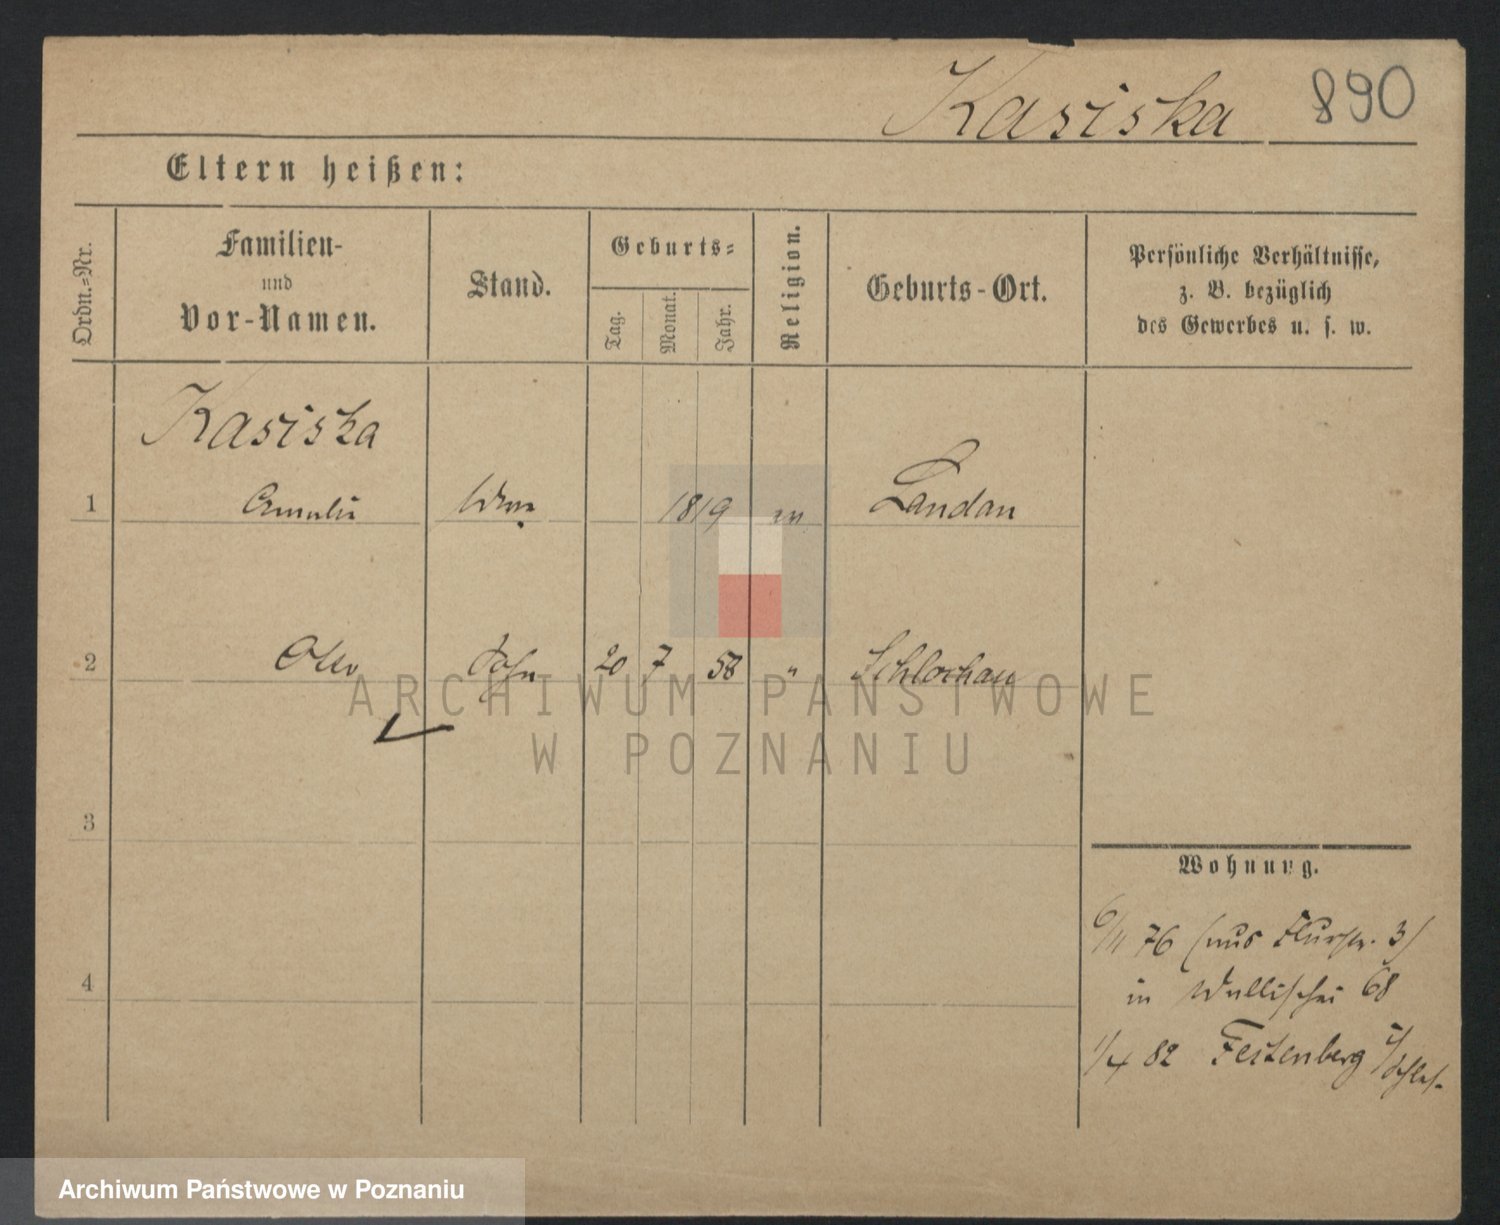 Kasiska 890
Eltern heißen:
Ordn.-Nr.
Familien-
und
Vor-Namen.
Stand.
Geburts-
Tag.
Monat.
Jahr.
Religion.
Geburts-Ort.
Persönliche Verhältnisse,
z. B. bezüglich
des Gewerbes u. s. w.
Kasiska
1 Amalie Wwe 1819 Landau
2 Otto Sohn 20 7 58 " Schlochau
ARCHIWUM PAŃSTWOWE
W POZNANIU
3
4
Wohnung.
6/11 76 (aus Flurstr. 3)
in Wallischei 68
1/4 82 Festenberg i/Schles.
Archiwum Państwowe w Poznaniu